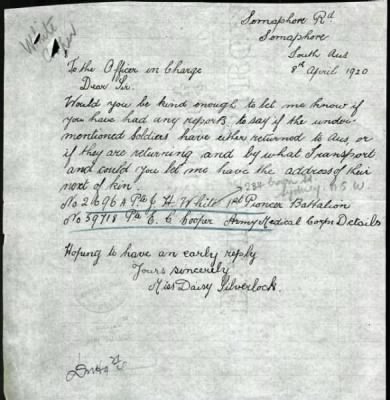 Semaphore Rd
Semaphore
South Aus
8th April 1920
White
To the Officer in Charge
Dear Sir.
Would you be kind enough to let me know if
you have had any reports, to say if the under-
mentioned soldiers have either returned to Aus, or
if they are returning and by what Transport
and could you let me have the address of their
next of kin.
284
Sydney N.S.W.
No 2696 A Pte J H White 1st Pioneer Battalion
No 39718 Pte E. C Cooper Army Medical Corps Details
Hoping to have an early reply
Yours sincerely
Miss Daisy Silverlock.